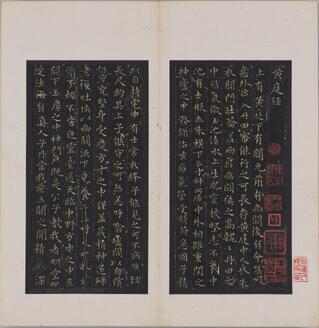 黃庭經
上有黃庭下有關元前有幽闕後有命門噓吸
廬外出入丹田審能行之可長存黃庭中人衣朱
衣關門壯籥蓋兩扉幽闕俠之高巍巍丹田之
中精氣微玉池清水上生肥靈根堅志不衰中
池有士服赤朱橫下三寸神所居中外相距重閉之
神廬之中務脩治玄癰氣管受精符急固子精
以自持宅中有士常衣絳子能見之可不病橫理
長尺約其上子能守之可無恙呼噏廬間以自償
保守完堅身受慶方寸之中謹蓋藏精神還歸
老復壯俠以幽闕流下竟養子玉樹不可杖至
道不煩不旁迕靈臺通天臨中野方寸之中至
關下玉房之中神門戶既是公子教我者明堂四
達法海員真人子丹當我前三關之間精氣深